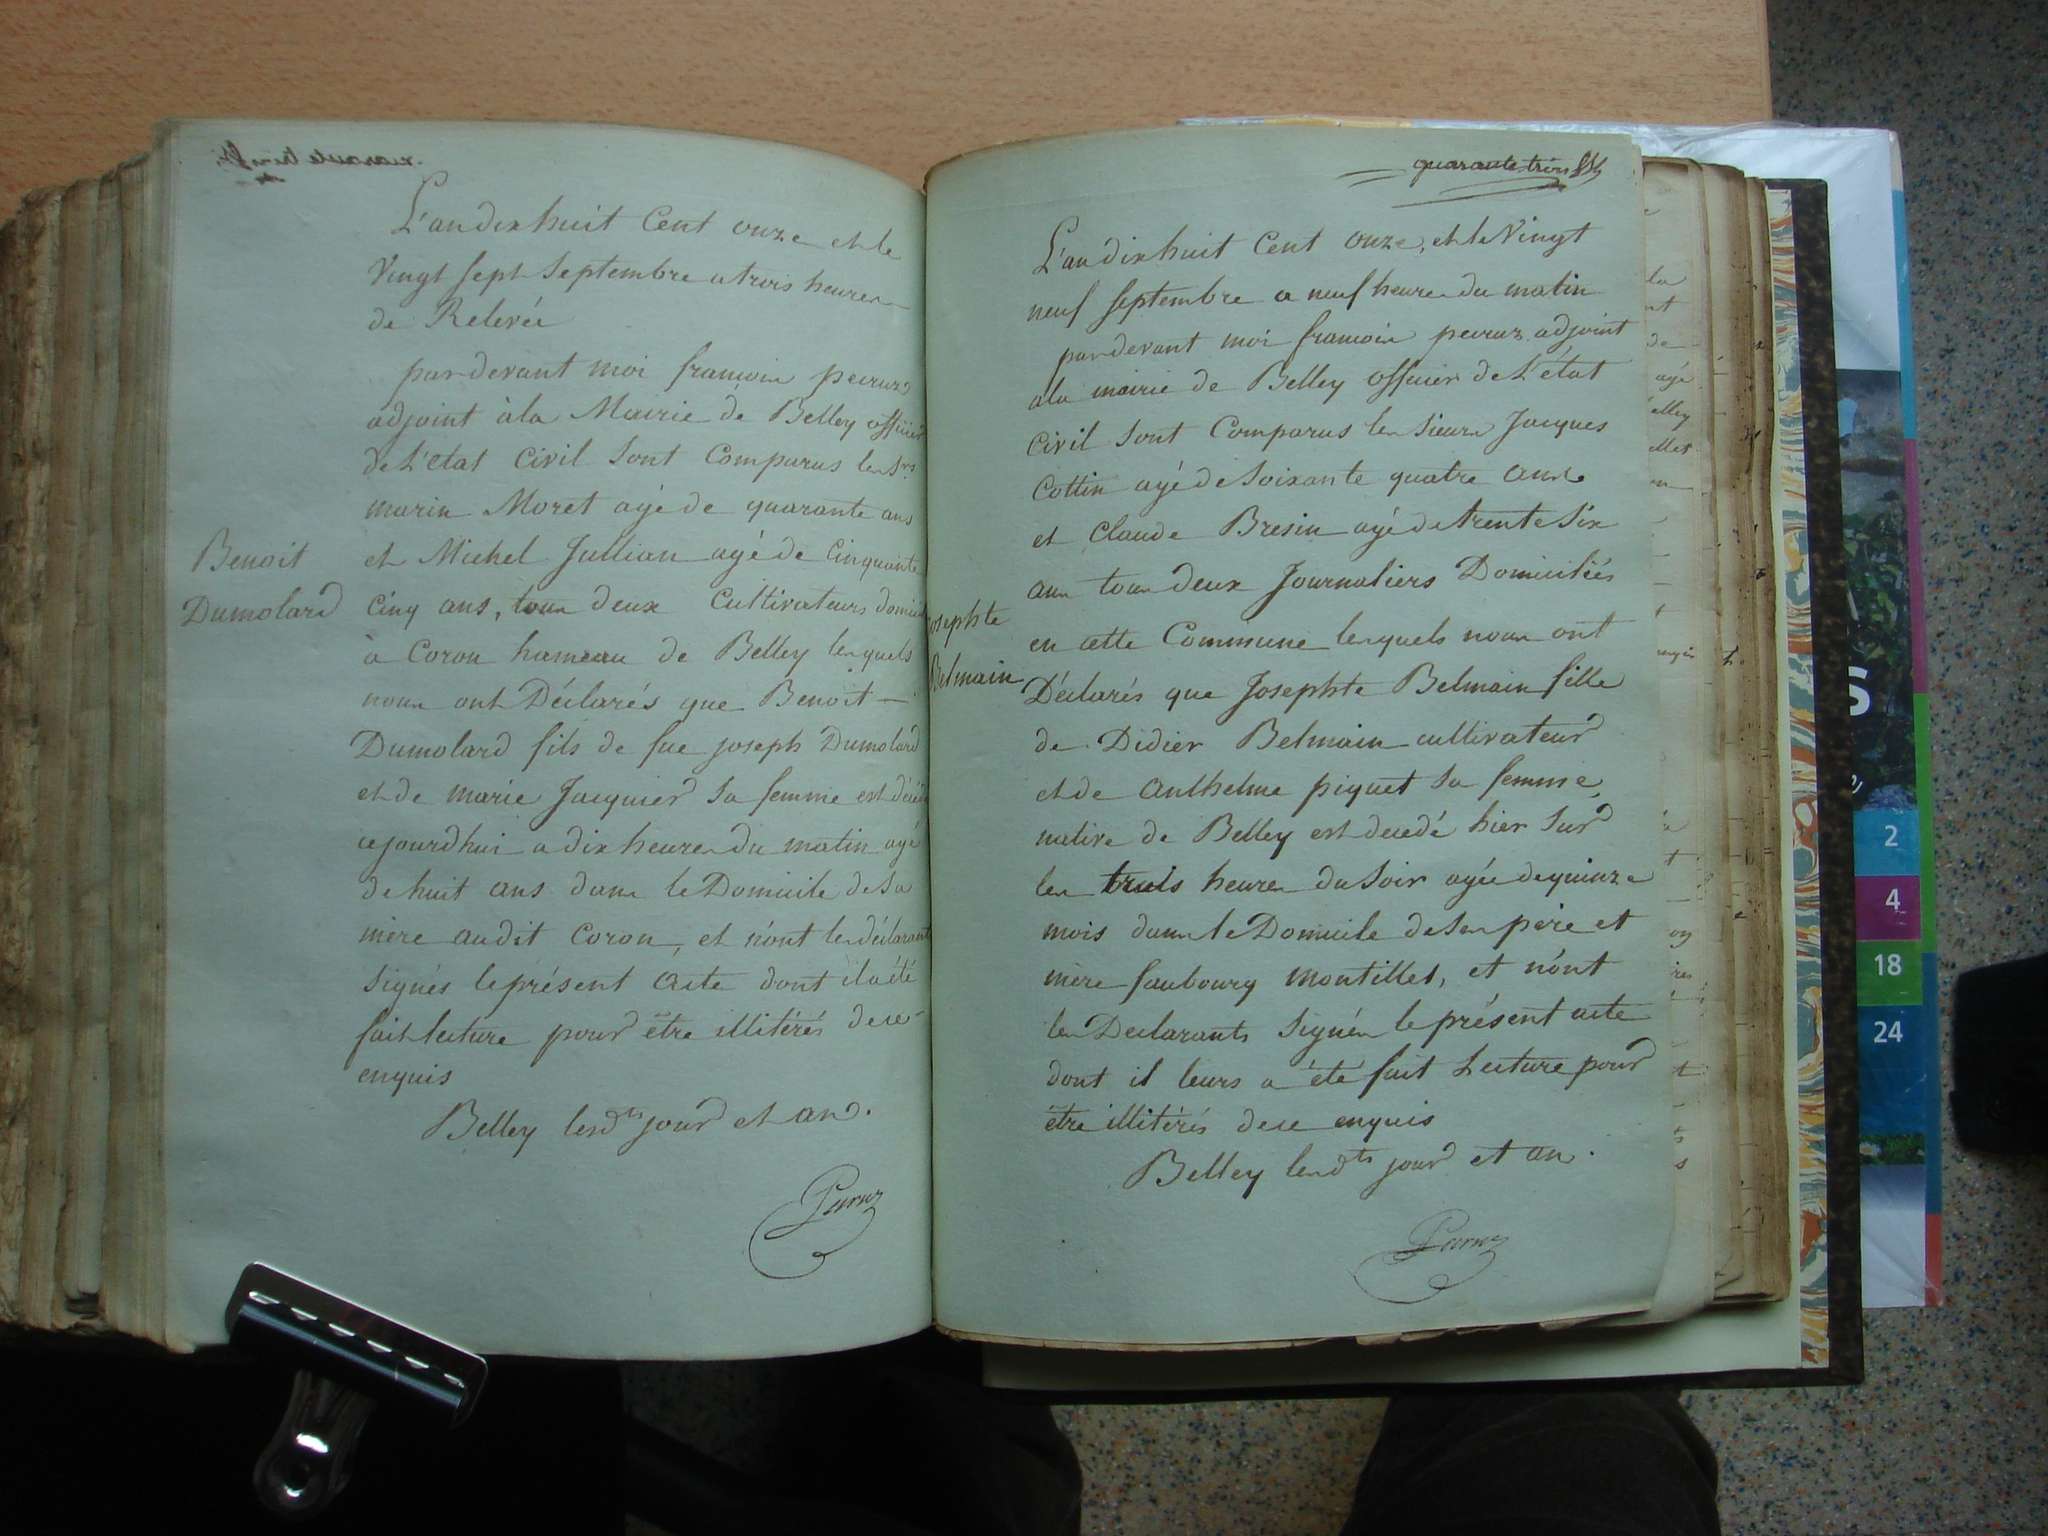 L'an dix huit Cent onze et le
Vingt sept Septembre a trois heures
de Relevée
pardevant moi françois peuruz
adjoint à la Mairie de Belley officier
de L'état Civil Sont Comparus les Srs
marin Moret agé de quarante ans
et Michel Jullian agé de Cinquante
Cinq ans, tous deux Cultivateurs
à Coron hameau de Belley lesquels
nous ont Déclarés que Benoit
Dumolard fils de fue joseph Dumolard
et de marie Jacquier Sa femme est
cejourdhui a dix heures du matin agé
de huit ans dans le Domicile de Sa
mère audit Coron, et n'ont les déclarants
Signés le présent Acte dont il a été
fait lecture pour être illitérés de ce
enquis
Belley lesdts jour et an.
Benoit
Dumolard
quarante trois
L'an dix huit Cent onze, et le Vingt
neuf Septembre a neuf heures du matin
pardevant moi françois peuruz adjoint
a la mairie de Belley officier de L'état
Civil Sont Comparus les Sieurs Jacques
Cottin agé de Soixante quatre ans
et Claude Bresin agé de trente Six
ans tous deux Journaliers Domiciliés
en cette Commune lesquels nous ont
Déclarés que Josephte Belmain fille
de Didier Belmain cultivateur
et de Anthelme piquet Sa femme,
native de Belley est decedé hier Sur
les trois heures du Soir agée de quinze
mois dans le Domicile de Ses père et
mère faubourg montillet, et n'ont
les Declarants Signés le présent acte
dont il leurs a été fait Lecture pour
être illitérés de ce enquis
Belley lesdts jour et an.
Josephte
Belmain
2
4
18
24